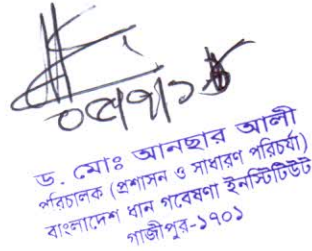 ড. মোঃ আনছার আলী
পরিচালক (প্রশাসন ও সাধারণ পরিচর্যা)
বাংলাদেশ ধান গবেষণা ইনস্টিটিউট
গাজীপুর-১৭০১